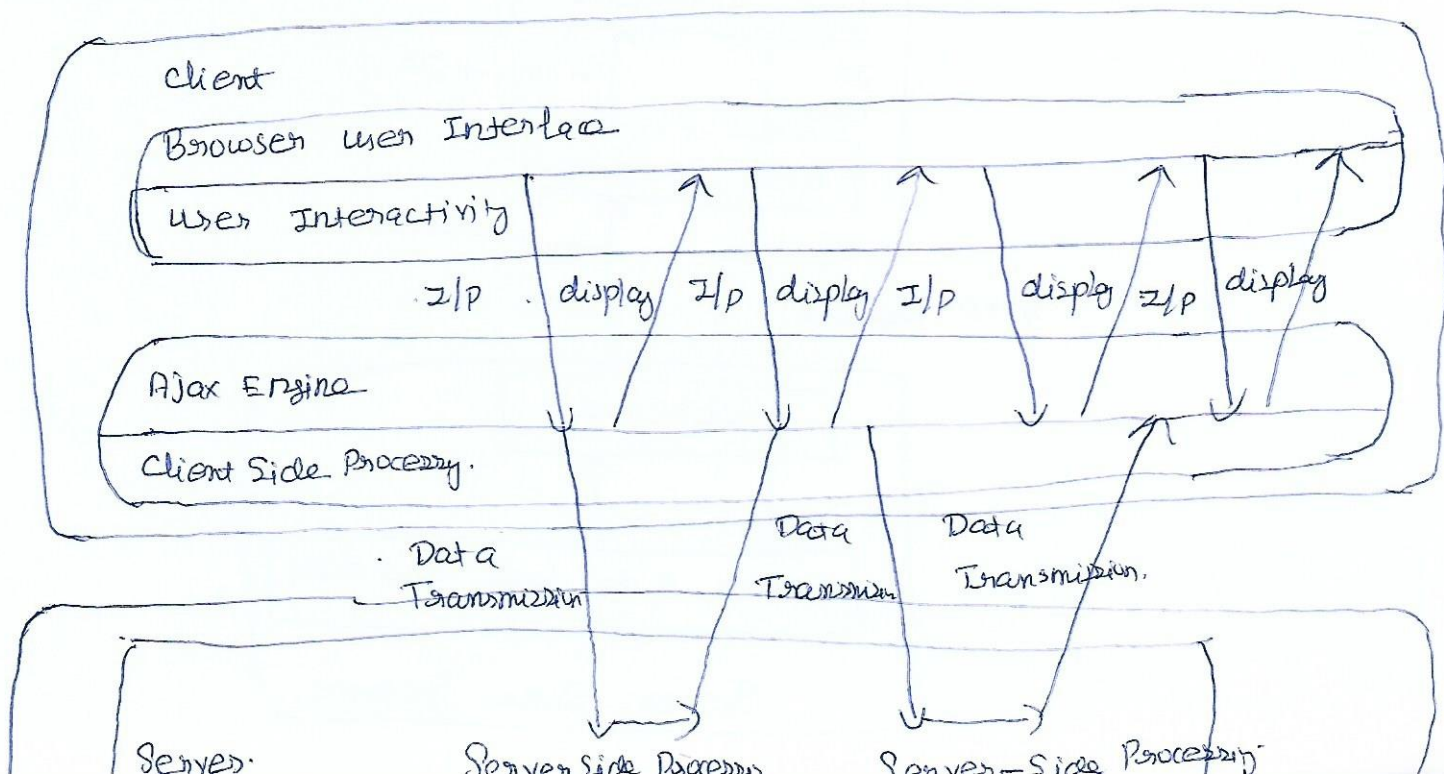 Client
Browser user Interface
User Interactivity
I/P display I/P display I/P display I/P display
Ajax Engine
Client Side Processy.
Data Data Data
Transmission Transmisn Transmission.
Server. Server Side Processy Server-Side Processing